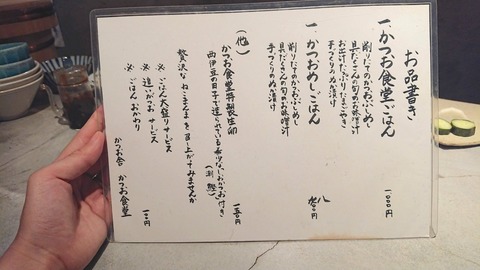 お品書き
一、かつお食堂ごはん 一、〇〇〇円
削りたてのかつおぶしめし
具だくさんの旬のお味噌汁
お出汁たっぷりたまごやき
手づくりのぬか漬け
一、かつおめしごはん 八〇〇円
削りたてのかつおぶしめし
具だくさんの旬のお味噌汁
手づくりのぬか漬け
(他)
かつお食堂特製生卵 一五〇円
西伊豆の田子で造られている
しおかつお付き
贅沢なねこまんまを召し上がってみませんか
※ごはん大盛りサービス
※追いがつおサービス
※ごはんおかわり 一〇〇円
かつお食堂